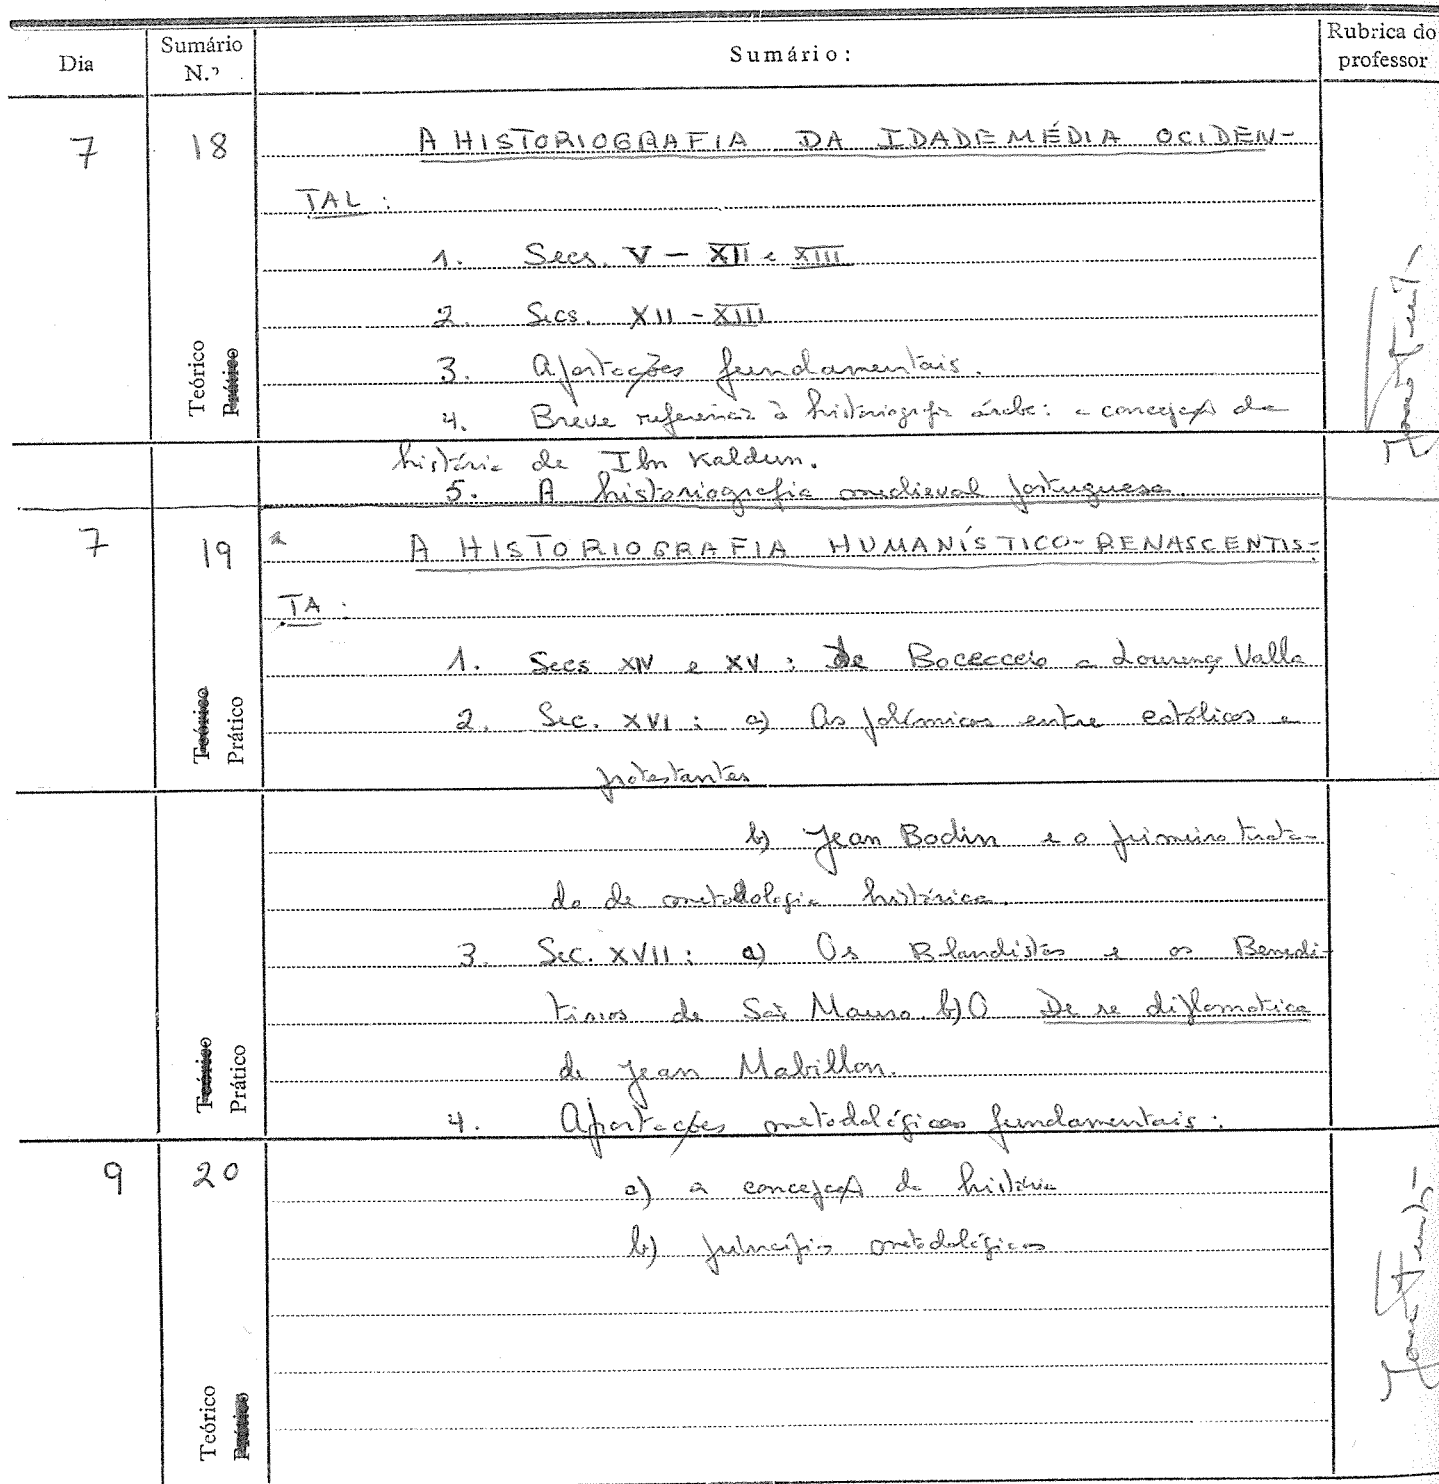 Dia
Sumário N.º
Sumário:
Rubrica do professor
7
18
A HISTORIOGRAFIA DA IDADE MÉDIA OCIDEN-
TAL :
1. Secs. V - XII e XIII
2. Secs. XII - XIII
3. Aportações fundamentais.
4. Breve referencia à historiografia árabe: a concepção da
Teórico
Prático
história de Ibn Kaldun.
5. A historiografia medieval portuguesa.
7
19
A HISTORIOGRAFIA HUMANÍSTICO-RENASCENTIS-
TA :
1. Secs XIV e XV : De Bocaccio a Lourenço Valla
2. Sec. XVI : a) As polémicas entre católicos e
protestantes
Teórico
Prático
b) Jean Bodin e o primeiro trata-
do de metodologia histórica.
3. Sec. XVII : a) Os Blandistas e os Benedi-
tinos de São Mauro. b) O De re diplomatica
de Jean Mabillon.
4. Aportações metodológicas fundamentais :
Teórico
Prático
9
20
a) a concepção da história
b) princípios metodológicos
Teórico
Prático